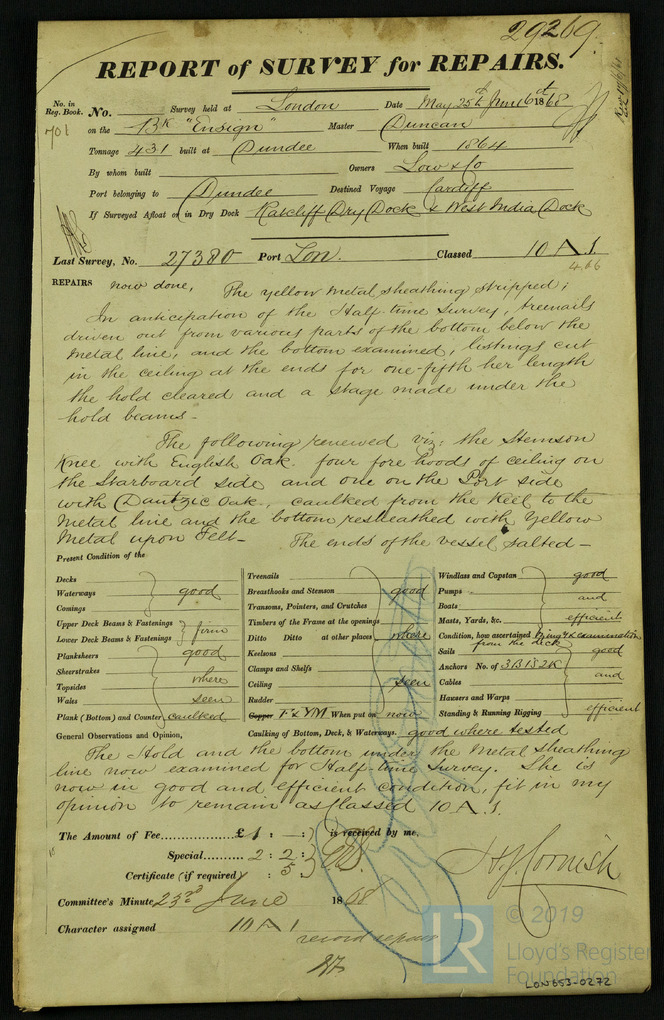 29269.
REPORT of SURVEY for REPAIRS.
No. in Reg. Book. 701
No. Survey held at London Date May 25th June 6th 1868
on the Bk "Ensign" Master Duncan
Tonnage 431 built at Dundee When built 1864
By whom built Owners Low & Co
Port belonging to Dundee Destined Voyage Cardiff
If Surveyed Afloat or in Dry Dock Ratcliff Dry Dock & West India Dock
Last Survey, No. 27380 Port Lon. Classed 10 A 1
4.66
REPAIRS now done, The yellow metal sheathing stripped;
In anticipation of the Half-time Survey, treenails
driven out from various parts of the bottom below the
Metal line, and the bottom examined, listings cut
in the ceiling at the ends for one-fifth her length
the hold cleared and a stage made under the
hold beams -
The following renewed viz: the Stemson
Knee with English Oak. four fore hoods of ceiling on
the Starboard side and one on the Port side
with Dantzic Oak, caulked from the Keel to the
Metal line and the bottom resheathed with Yellow
Metal upon Felt - The ends of the vessel salted -
Present Condition of the
Decks
Waterways good
Comings
Upper Deck Beams & Fastenings
Lower Deck Beams & Fastenings firm
Planksheers good
Sheerstrakes
Topsides where
Wales seen
Plank (Bottom) and Counter caulked
Treenails
Breasthooks and Stemson good
Transoms, Pointers, and Crutches
Timbers of the Frame at the openings
Ditto Ditto at other places where
Keelsons
Clamps and Shelfs
Ceiling seen
Rudder
Copper F & YM When put on now
Windlass and Capstan good
Pumps and
Boats
Masts, Yards, &c. efficient
Condition, how ascertained by examination
from the deck
Sails good
Anchors No. of 3B 1S 2K
Cables and
Hawsers and Warps
Standing & Running Rigging efficient
General Observations and Opinion, Caulking of Bottom, Deck, & Waterways. good where tested
The Hold and the bottom under the Metal sheathing
line now examined for Half-time Survey. She is
now in good and efficient condition, fit in my
opinion to remain as Classed 10 A 1.
The Amount of Fee £1 : — : is received by me,
Special 2 : 2 :
Certificate (if required) : 5 :
H. J. Cornish
Committee's Minute 23rd June 1868
Character assigned 10 A 1
record repairs
LR
© 2019
Lloyd's Register
Foundation
LON653-0272